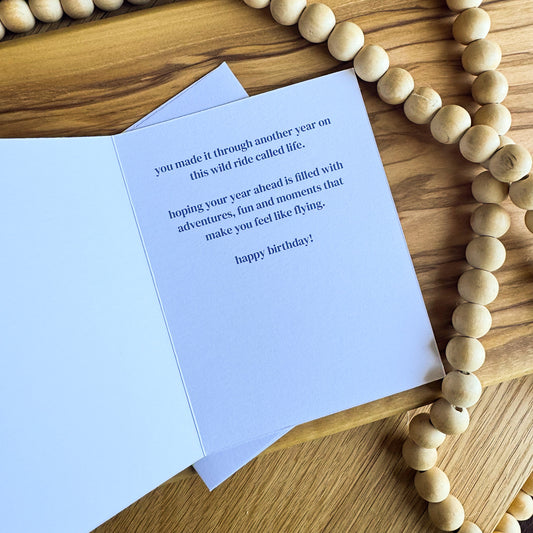 you made it through another year on
this wild ride called life.
hoping your year ahead is filled with
adventures, fun and moments that
make you feel like flying.
happy birthday!